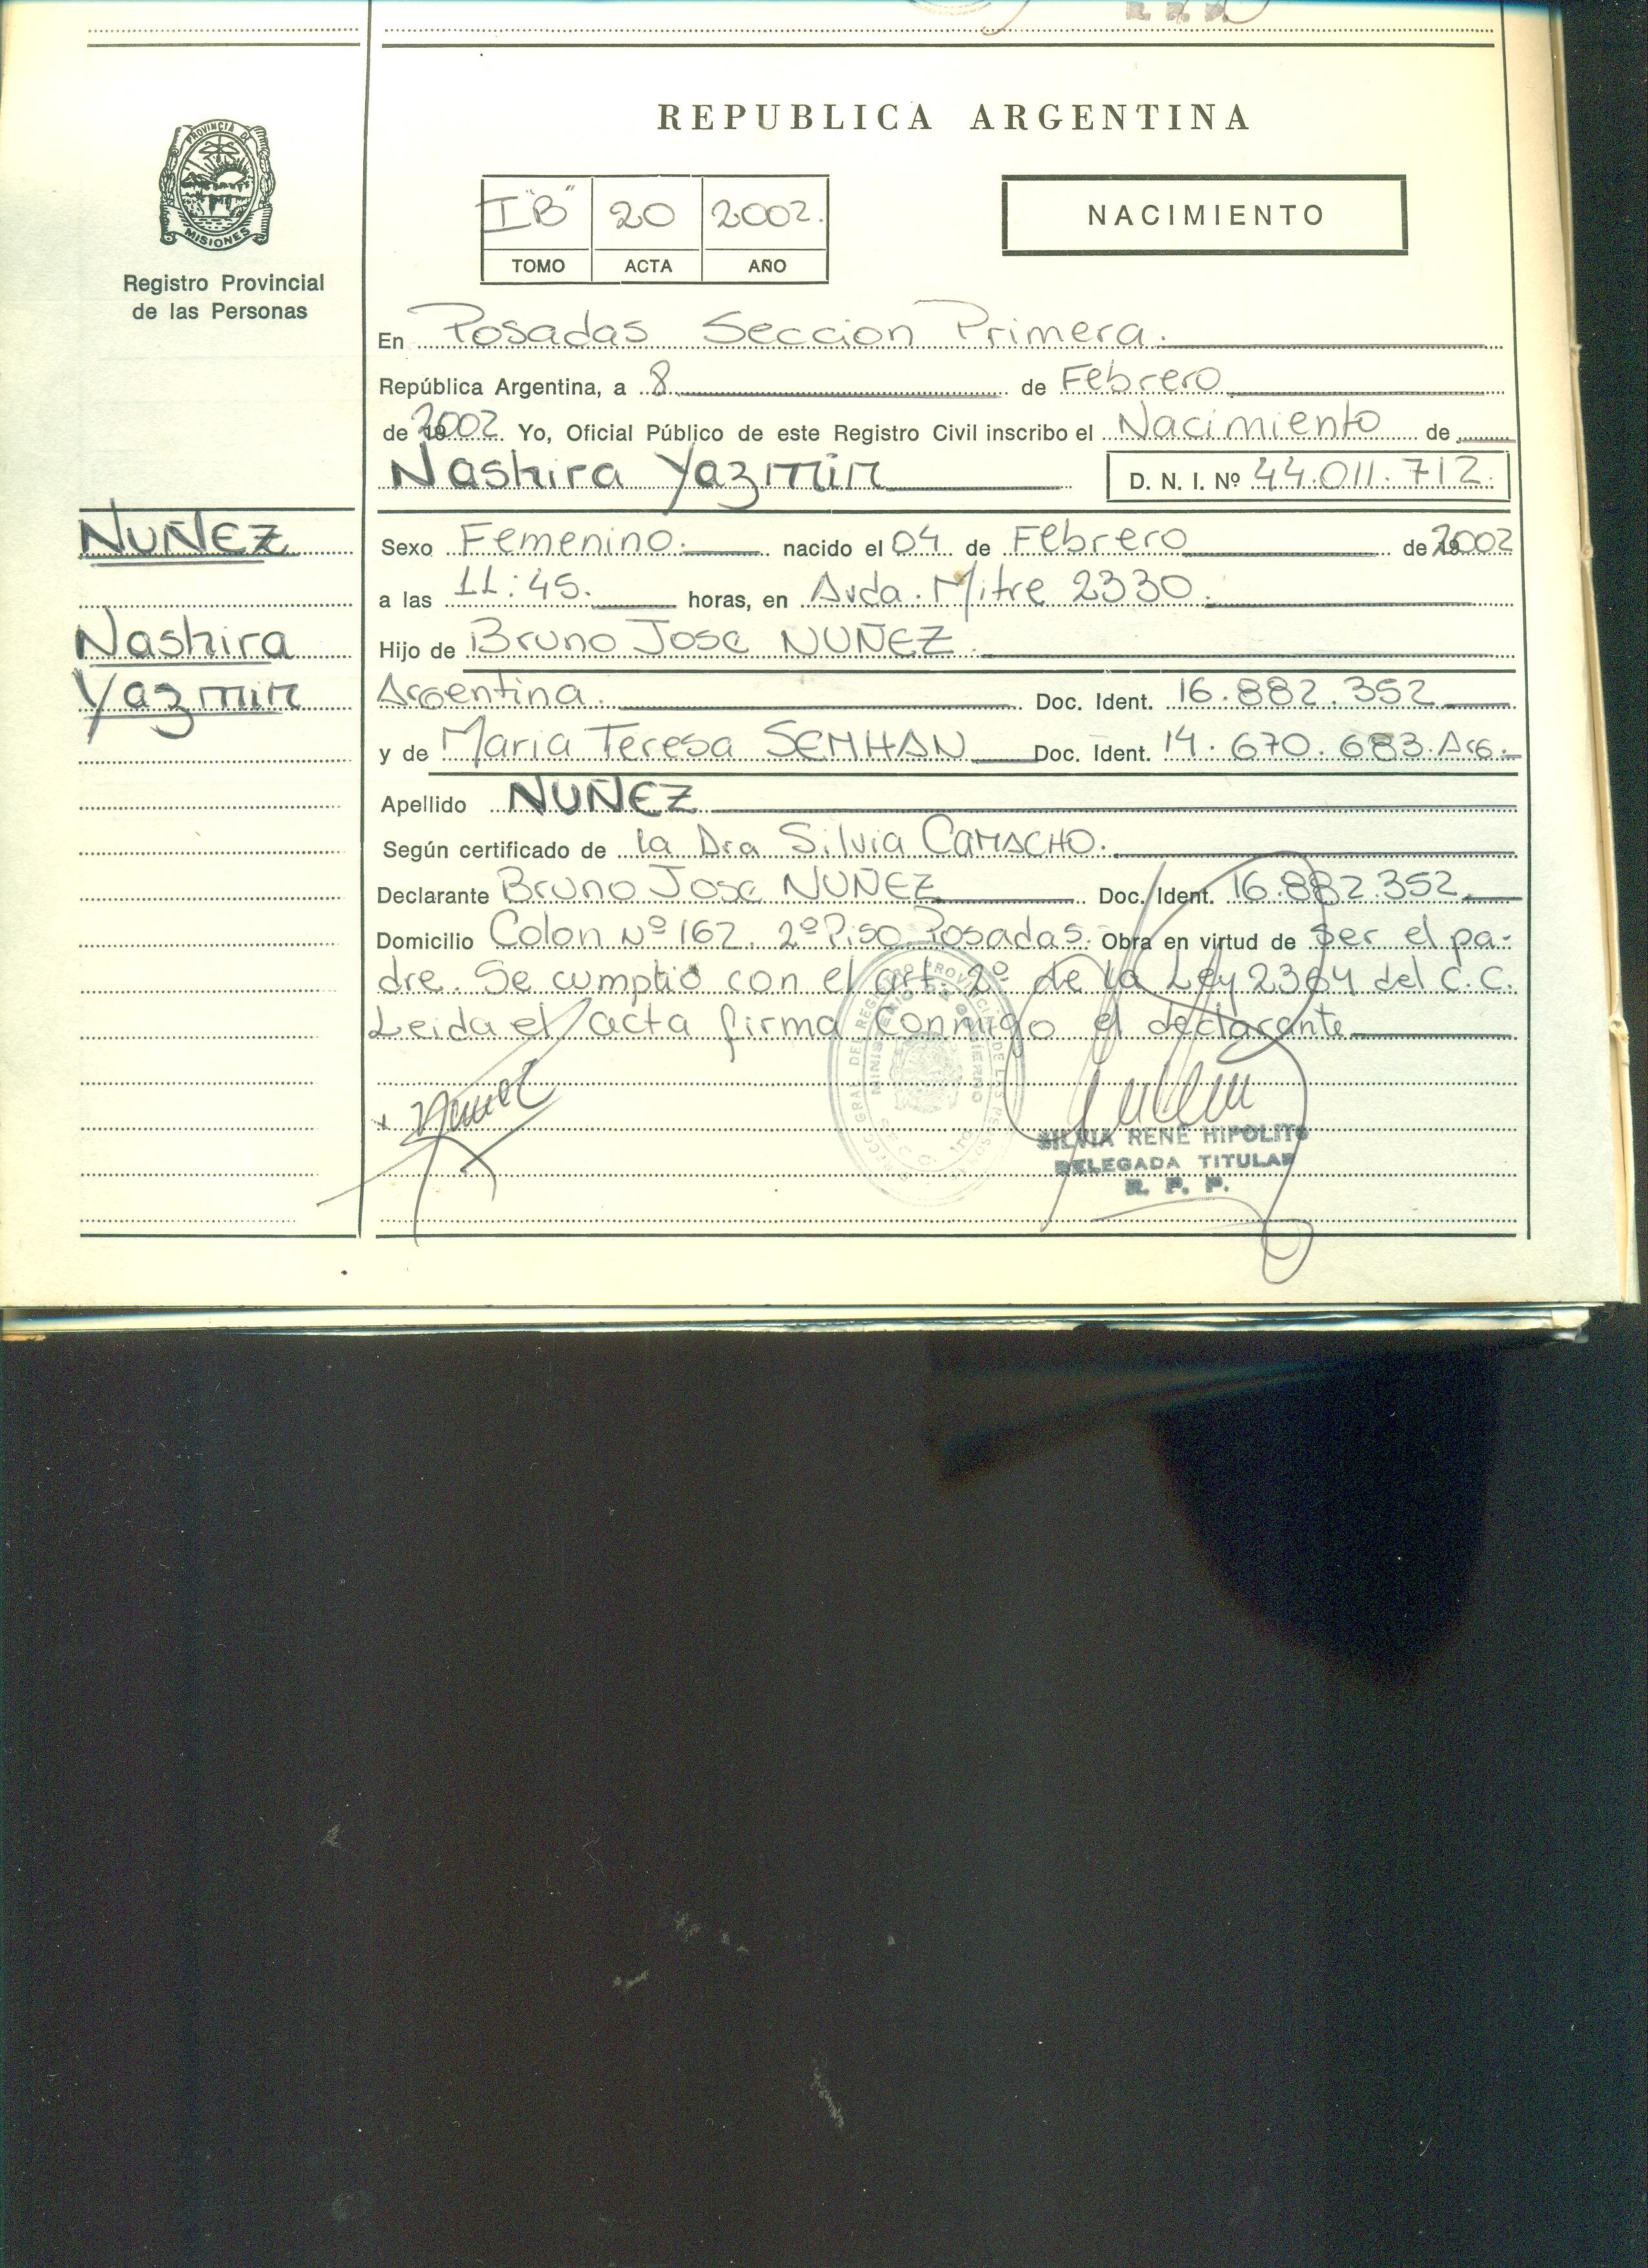 REPUBLICA ARGENTINA
PROVINCIA DE
MISIONES
Registro Provincial
de las Personas
I "B" 20 2002.
TOMO ACTA AÑO
NACIMIENTO
En Posadas Seccion Primera.
República Argentina, a 8 de Febrero
de 2002 Yo, Oficial Público de este Registro Civil inscribo el Nacimiento de
Nashira Yazmin D. N. I. Nº 44.011.712.
NUÑEZ
Nashira
Yazmin
Sexo Femenino. nacido el 04 de Febrero de 2002
a las 11:45. horas, en Avda. Mitre 2330.
Hijo de Bruno Jose NUÑEZ.
Argentina. Doc. Ident. 16.882.352
y de Maria Teresa SEMHAN Doc. Ident. 14.670.683.Arg.
Apellido NUÑEZ
Según certificado de la Dra Silvia CAMACHO.
Declarante Bruno Jose NUÑEZ Doc. Ident. 16.882.352
Domicilio Colon Nº 162. 2º Piso Posadas. Obra en virtud de ser el pa-
dre. Se cumplio con el art. 2º de la Ley 2364 del C.C.
Leida el acta firma conmigo el declarante
SILVIA RENE HIPOLITO
DELEGADA TITULAR
R. P. P.